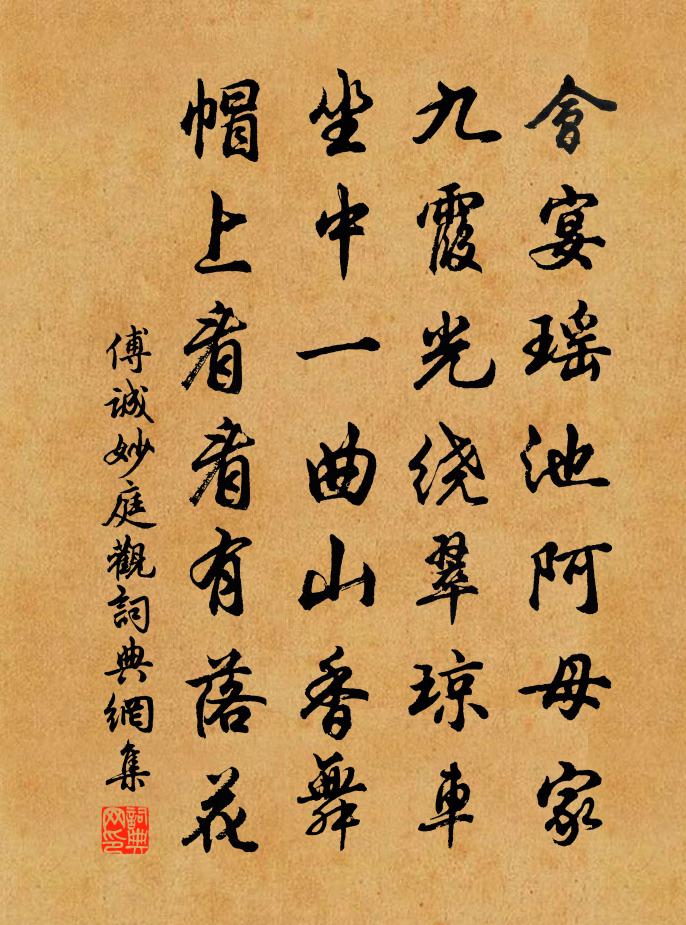 會宴瑶池阿母家
九霞光绕翠琼車
坐中一曲山香舞
帽上看看有落花
傅诚妙庭觀詞典網集
詞典网印